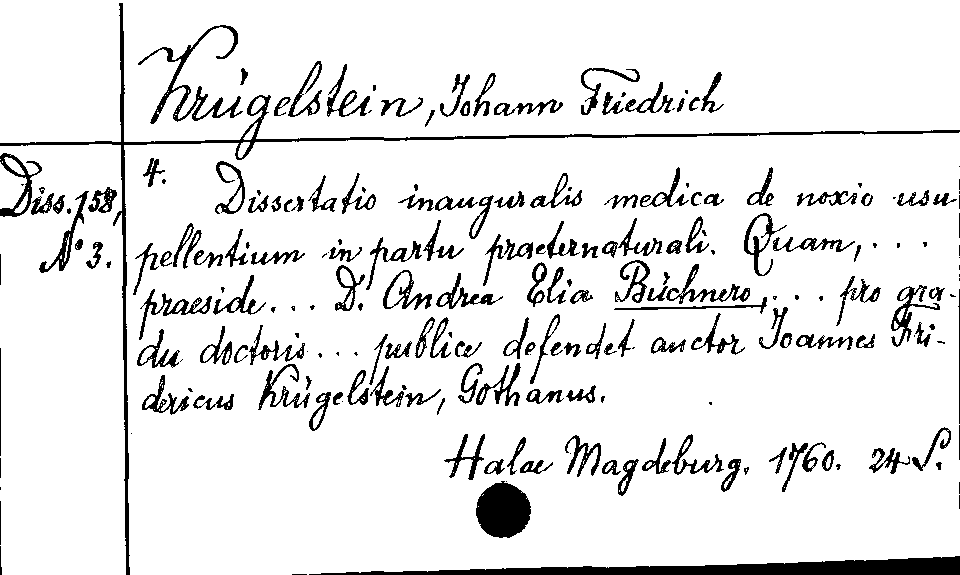 Krügelstein, Johann Friedrich
Diss. 158,
N° 3.
4. Dissertatio inauguralis medica de noxio usu
pellentium in partu praeternaturali. Quam, . . .
praeside . . . D. Andrea Elia Büchnero, . . . pro gra-
du doctoris . . . publice defendet auctor Joannes Fri-
dericus Krügelstein, Gothanus.
Halae Magdeburg. 1760. 24 S.